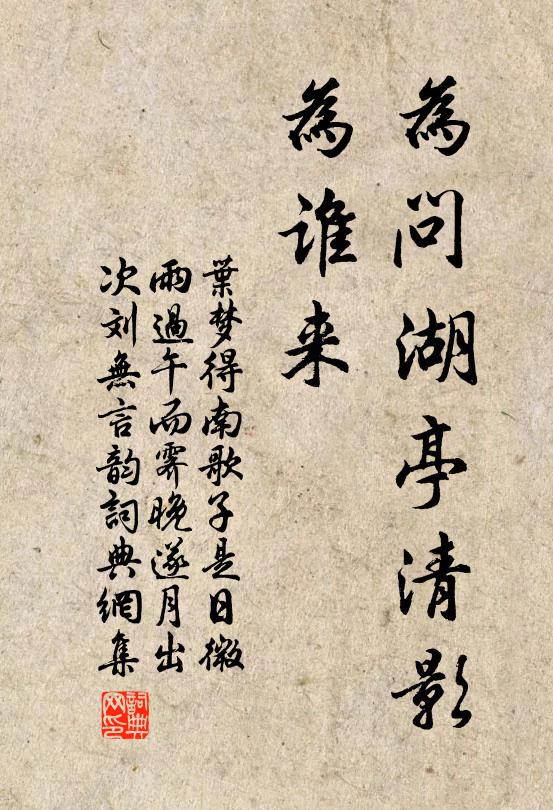 為問湖亭清影
為誰来
葉梦得南歌子是日微
雨過午而霽晚遂月出
次刘無言韵詞典網集
詞典
网印